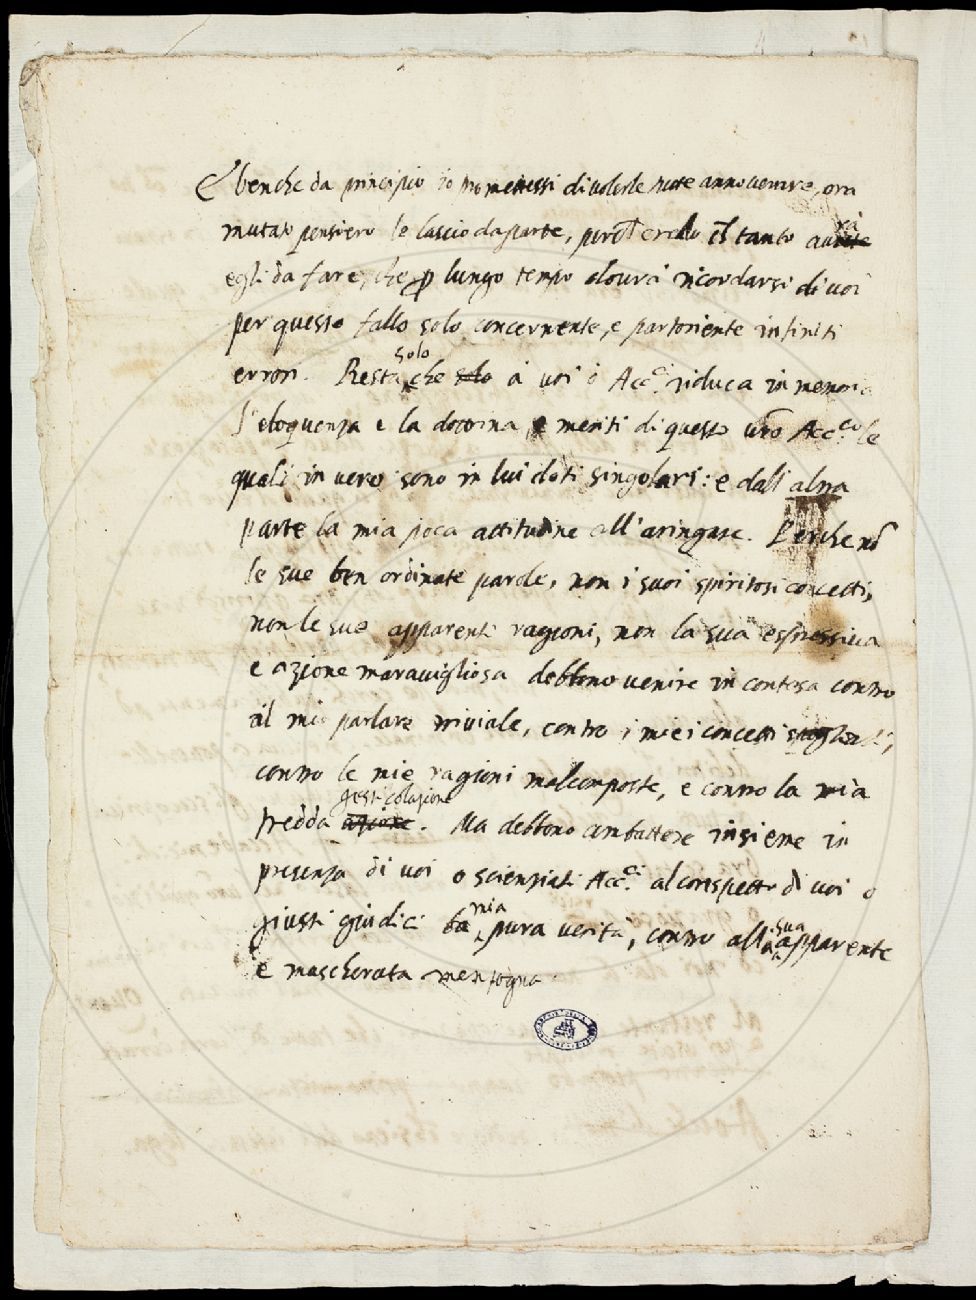 E benche da principio io promettessi di volerle tutte annoverare, ora
mutato pensiero le lascio da parte, perche credo che tanto avrà
egli da fare, che p lungo tempo dovrà ricordarsi di voi
per questo fallo solo concernente, e partoriente infiniti
errori. Resta solo che solo à voi ò Acc.ci riduca in memoria
l'eloquenza e la dottrina e meriti di questo vro Acc.co le
quali in vero sono in lui doti singolari: e dall'altra
parte la mia poca attitudine all'aringare. Perche nō
le sue ben ordinate parole, non i suoi spiritosi concetti,
non le sue apparenti ragioni, non la sua espressiva
e azione maravigliosa debbono venire in contesa contro
al mio parlare triviale, contro i miei concetti
contro le mie ragioni malcomposte, e contro la mia
fredda gesticolazione azione. Ma debbono combattere insieme in
presenza di voi o scienziati Acc.ci al conspetto di voi o
giusti giudici la mia pura verità, contro alla sua apparente
e mascherata menzogna